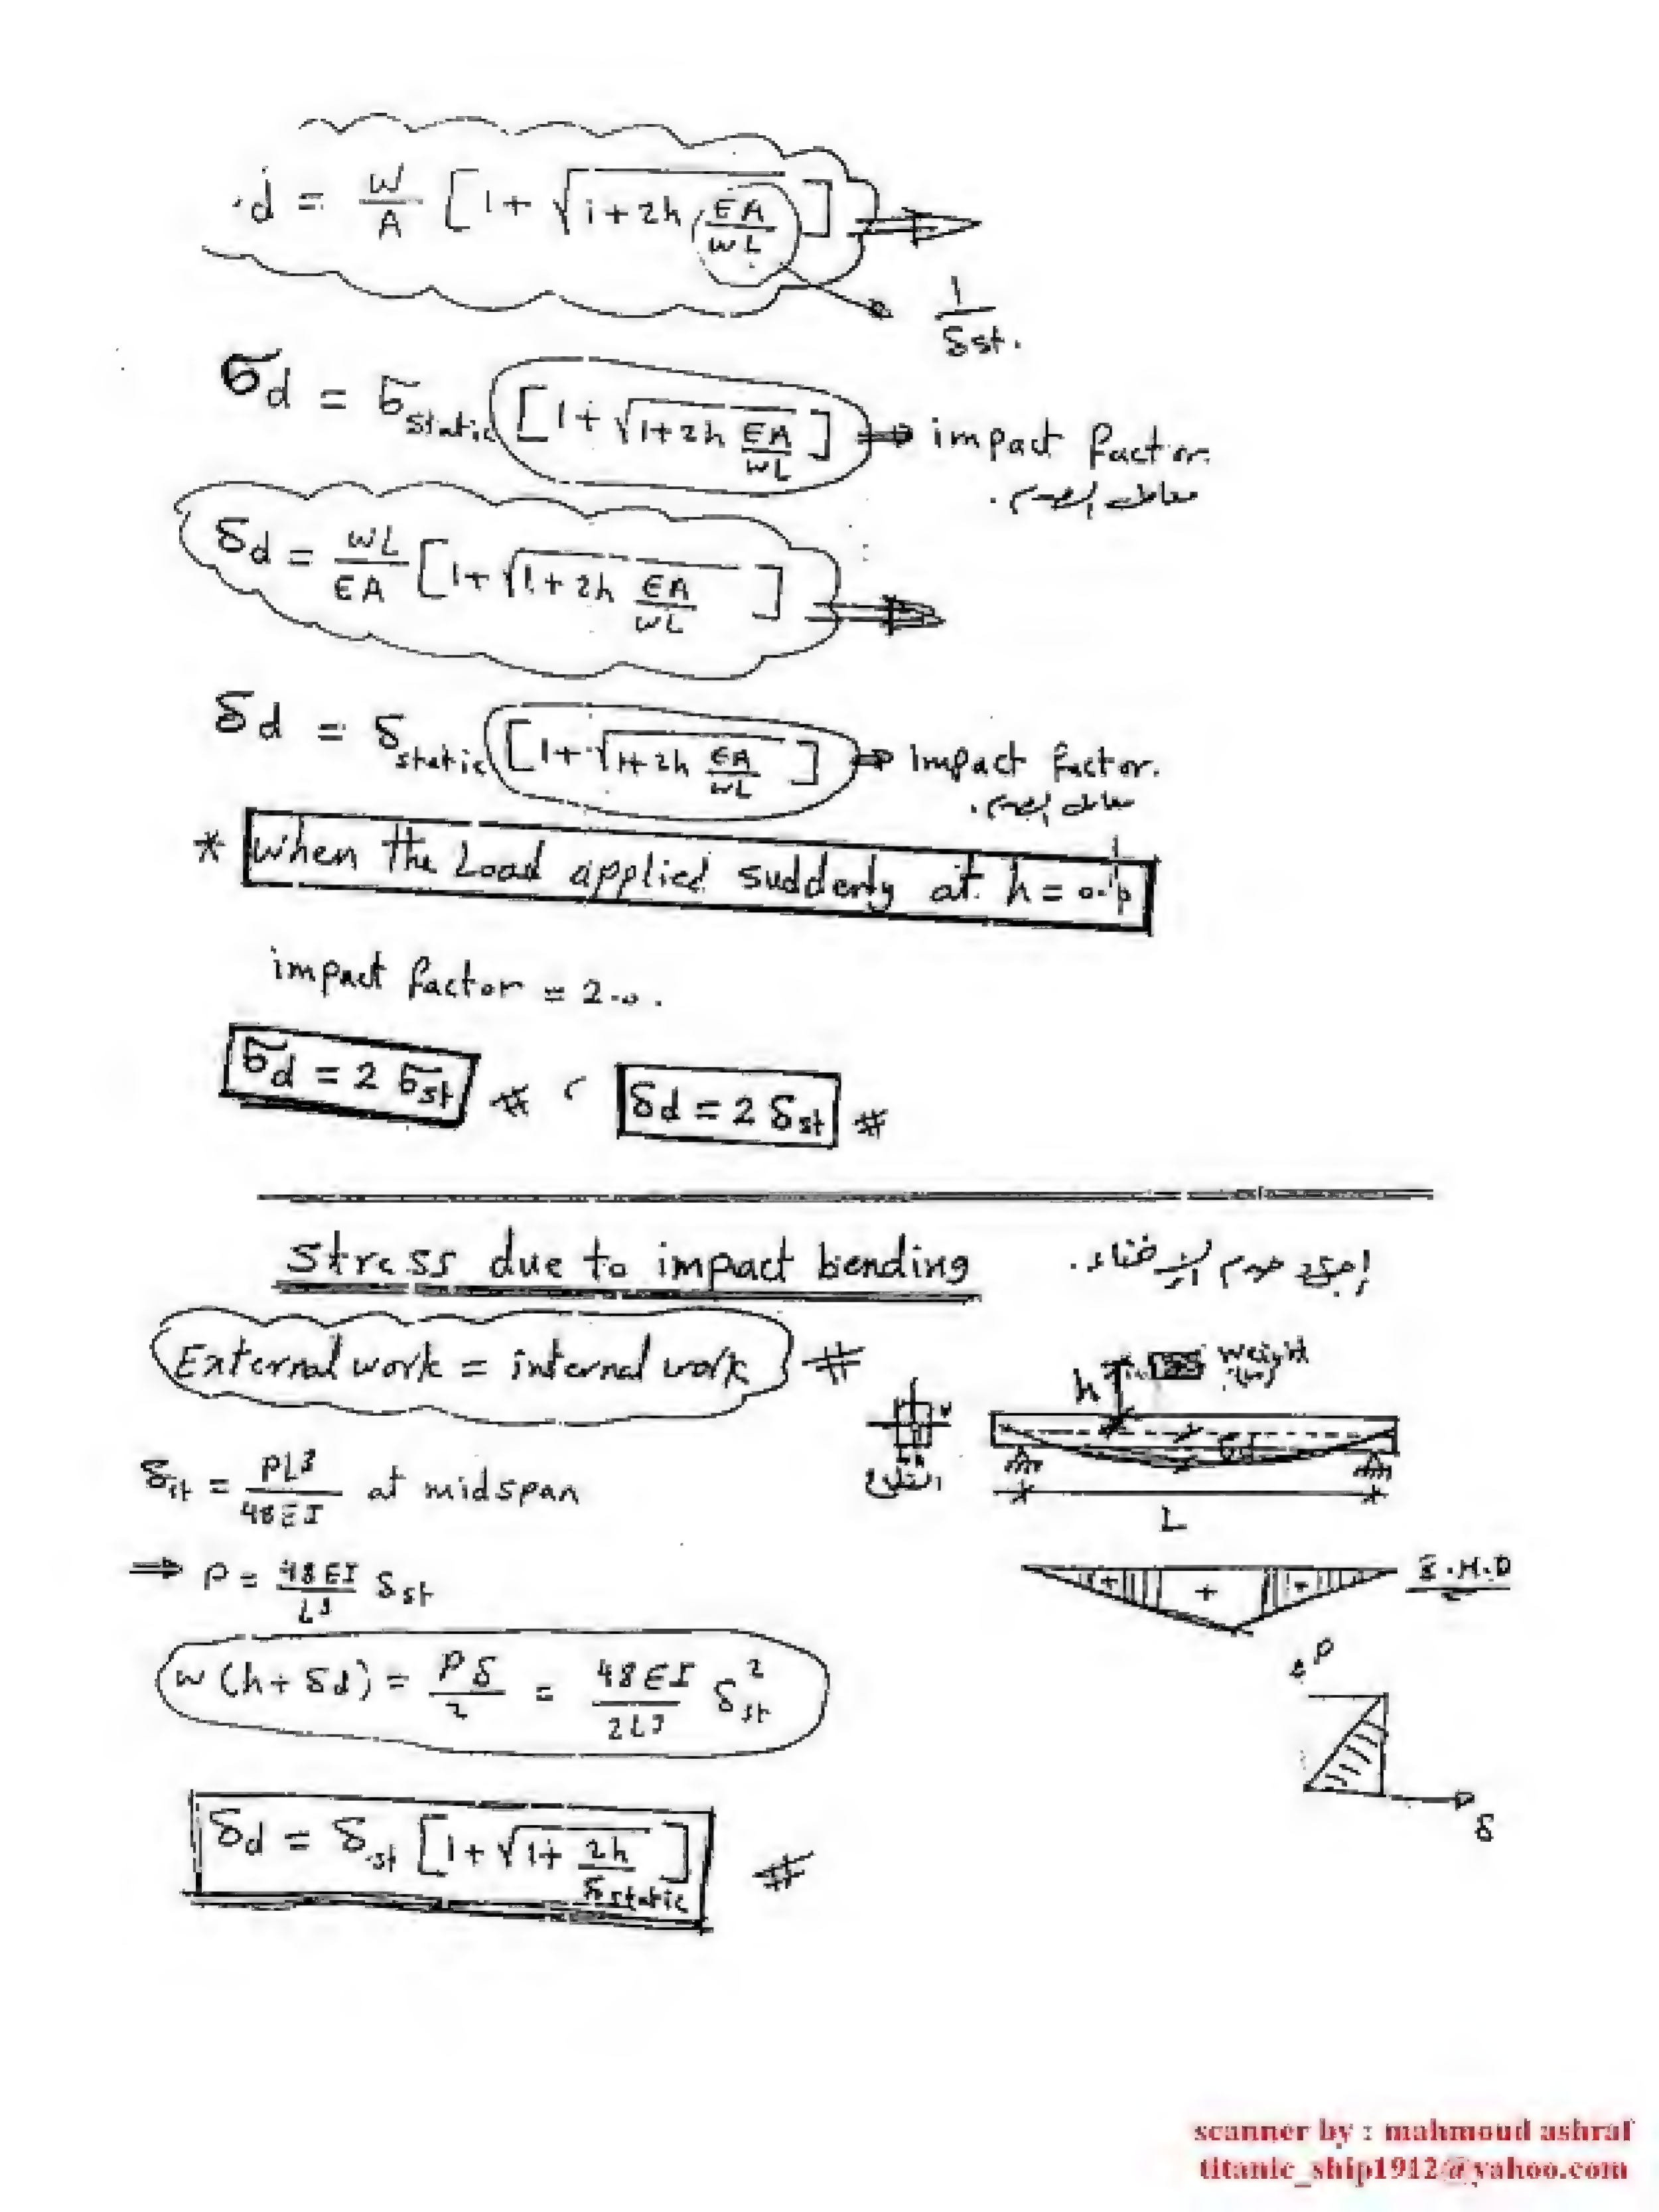 d = W/A [1 + √(1 + 2h EA/WL)]
1/δst.
σd = σstatic [1 + √(1 + 2h EA/WL)] ⇒ impact factor.
معامل الصدم.
δd = WL/EA [1 + √(1 + 2h EA/WL)]
δd = δstatic [1 + √(1 + 2h EA/WL)] ⇒ impact factor.
معامل الصدم.
* When the Load applied suddenly at h = 0.0
impact factor = 2.0.
σd = 2 σst # ، δd = 2 δst #
Stress due to impact bending
صدم الإنحناء.
External work = internal work #
h weight (w)
δd
القطاع
L
δst = PL³/48EI at midspan
⇒ P = 48EI/L³ δst
B.M.D
+ + +
w (h + δd) = Pδ/2 = 48EI/2L³ δst²
P
δ
δd = δst [1 + √(1 + 2h/δstatic)] #
scanner by : mahmoud ashraf
titanic_ship1912@yahoo.com